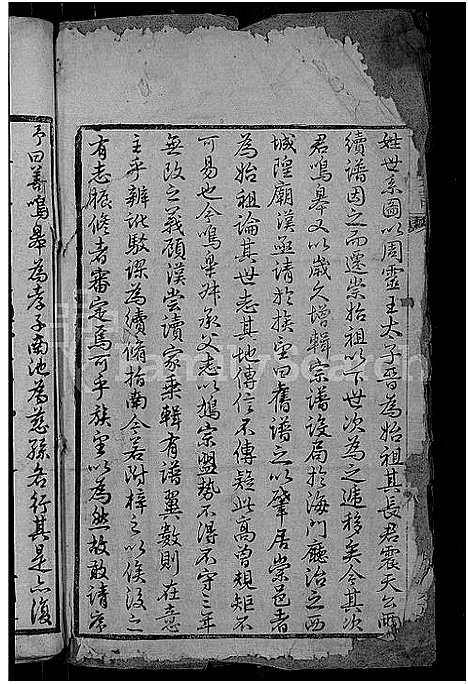 姓世系圖以周靈王太子晉為始祖其長君震天公時
續譜因之而遷崇始祖以下世次為之遞移矣今其次
君鳴皋又以歲久增輯宗譜設局於海門廳治之西
城隍廟漢亟請於族望曰舊譜之以肇居崇邑者
為始祖論其世志其地傳信不傳疑此高曾規矩不
可易也今鳴皋毋承父志以搗宗盟勢不得不守三年
無改之義顧漢嘗讀家乘輯有譜翼數則在意
主乎辨訛駁謬為續脩指南今若附梓之以俟後之
有志賑修者審定焉可乎族望以為然故敢請序
予曰善鳴皋為孝子南池為慈孫各行其是亦復
FamilySearch